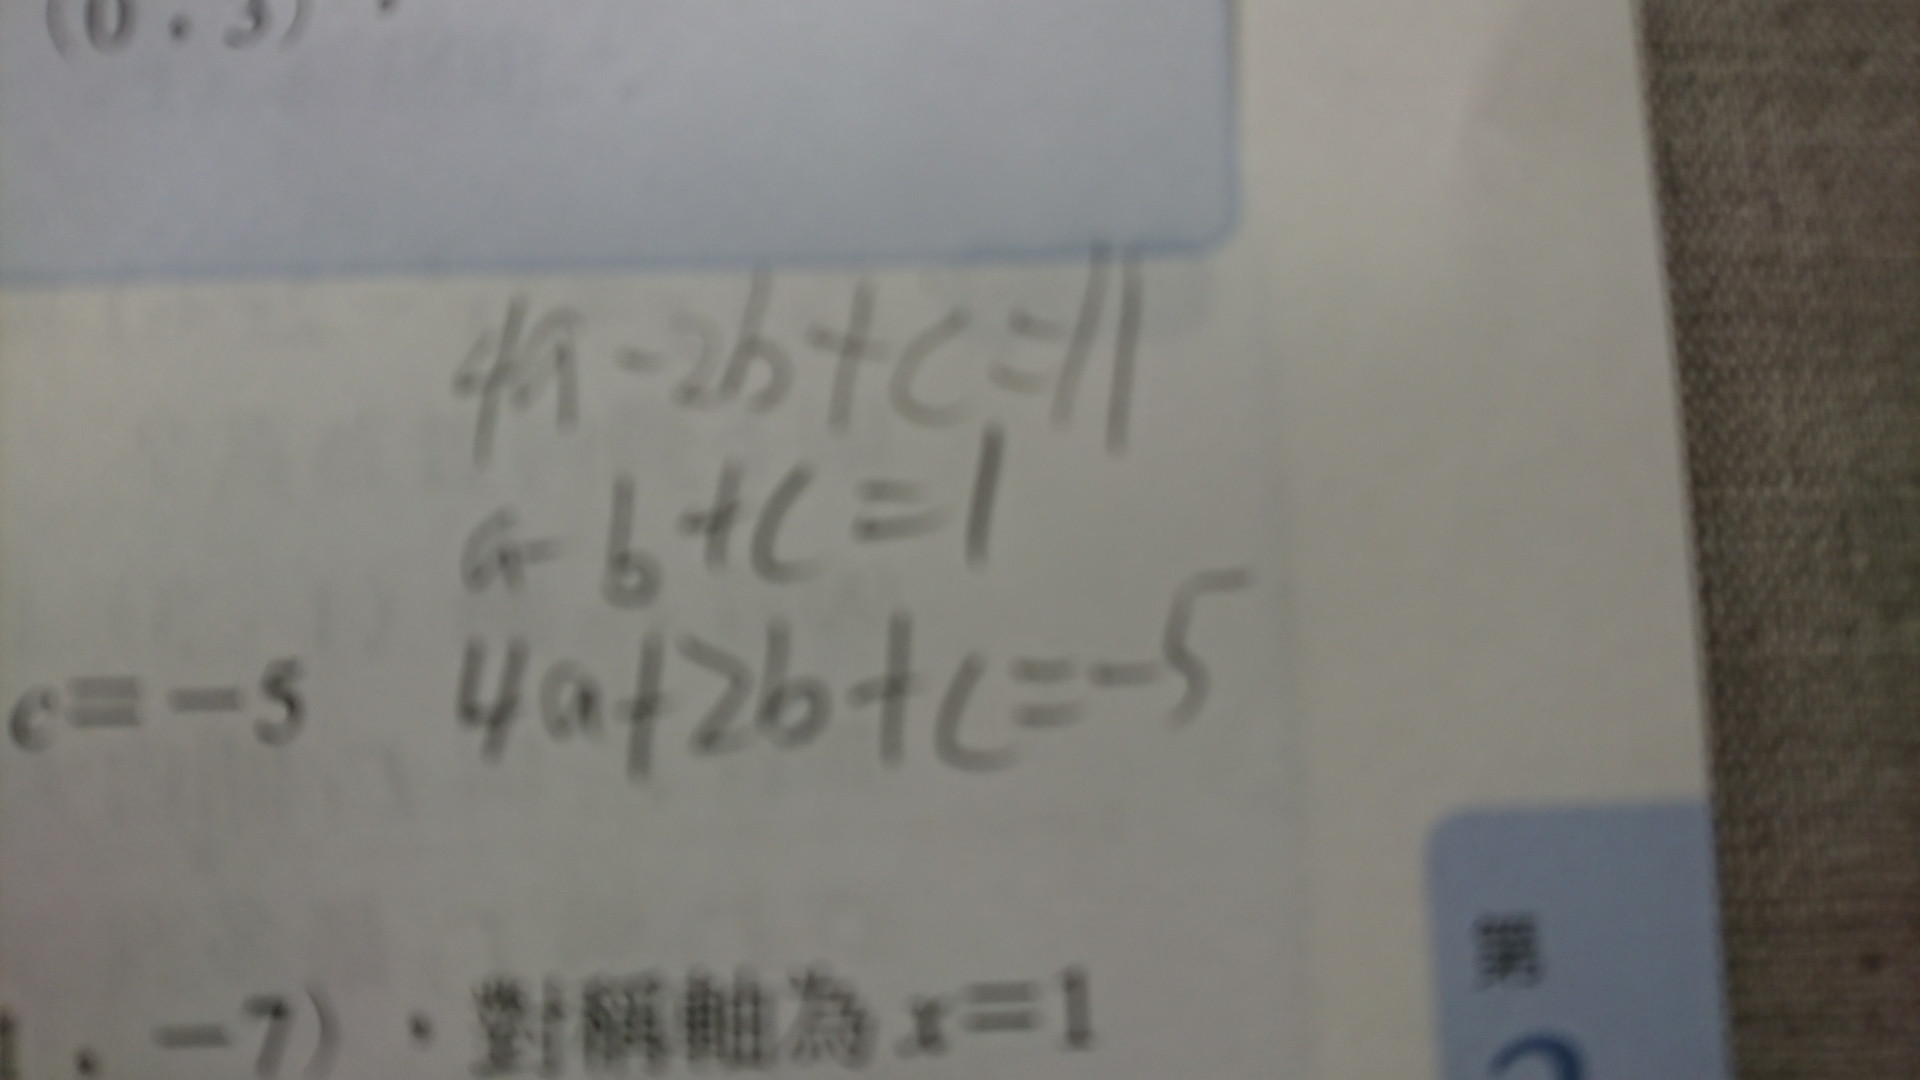 (0,3),
4a-2b+c=11
a-b+c=1
c=-5 4a+2b+c=-5
第
2
1,-7),對稱軸為 x=1